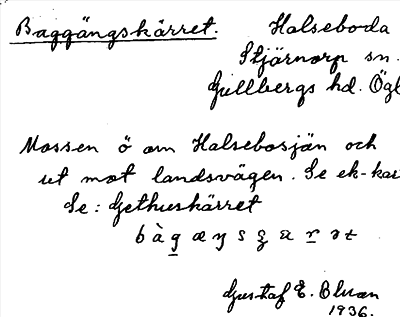 Baggängskärret. Halseboda
Stjärnorp sn.
Gullbergs hd. Ögl
Mossen ö om Halsebosjön och
ut mot landsvägen. Se ek-kar
Se: Gethuskärret
Gustaf E.
1936.